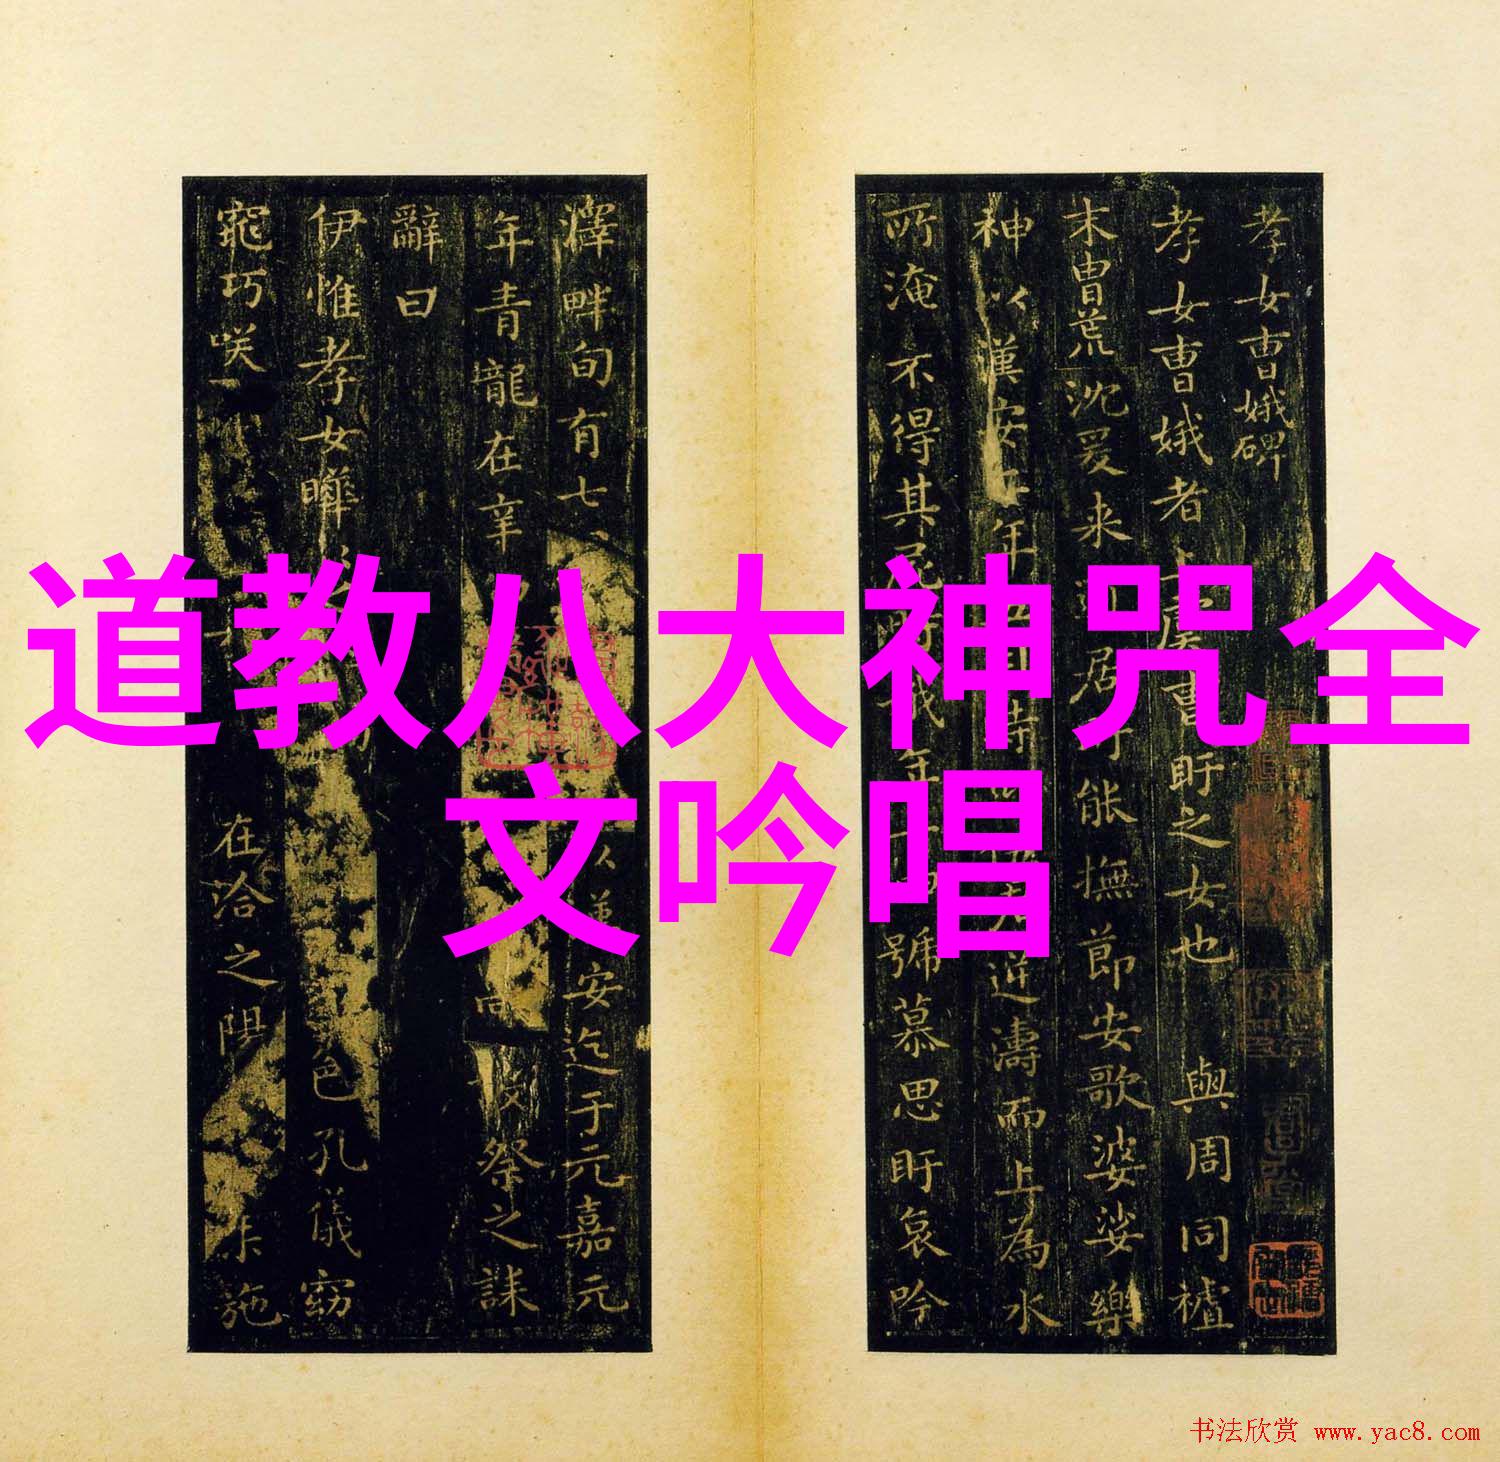 孝女曹娥碑
孝女曹娥者上虞曹盱之女也 與周同禃
末胄荒沈爰来 居 能撫節安歌婆娑樂
神以漢安 年 迎 濤而上為水
所淹不得其 年 號慕思盱哀吟
澤畔旬有七 安迄于元嘉元
年青龍在辛 祭之誄
辭曰
伊惟孝女曄 色孔儀窈
窕巧咲 在洽之陽 施
道教八大神咒全
文吟唱
书法欣赏 www.yac8.com